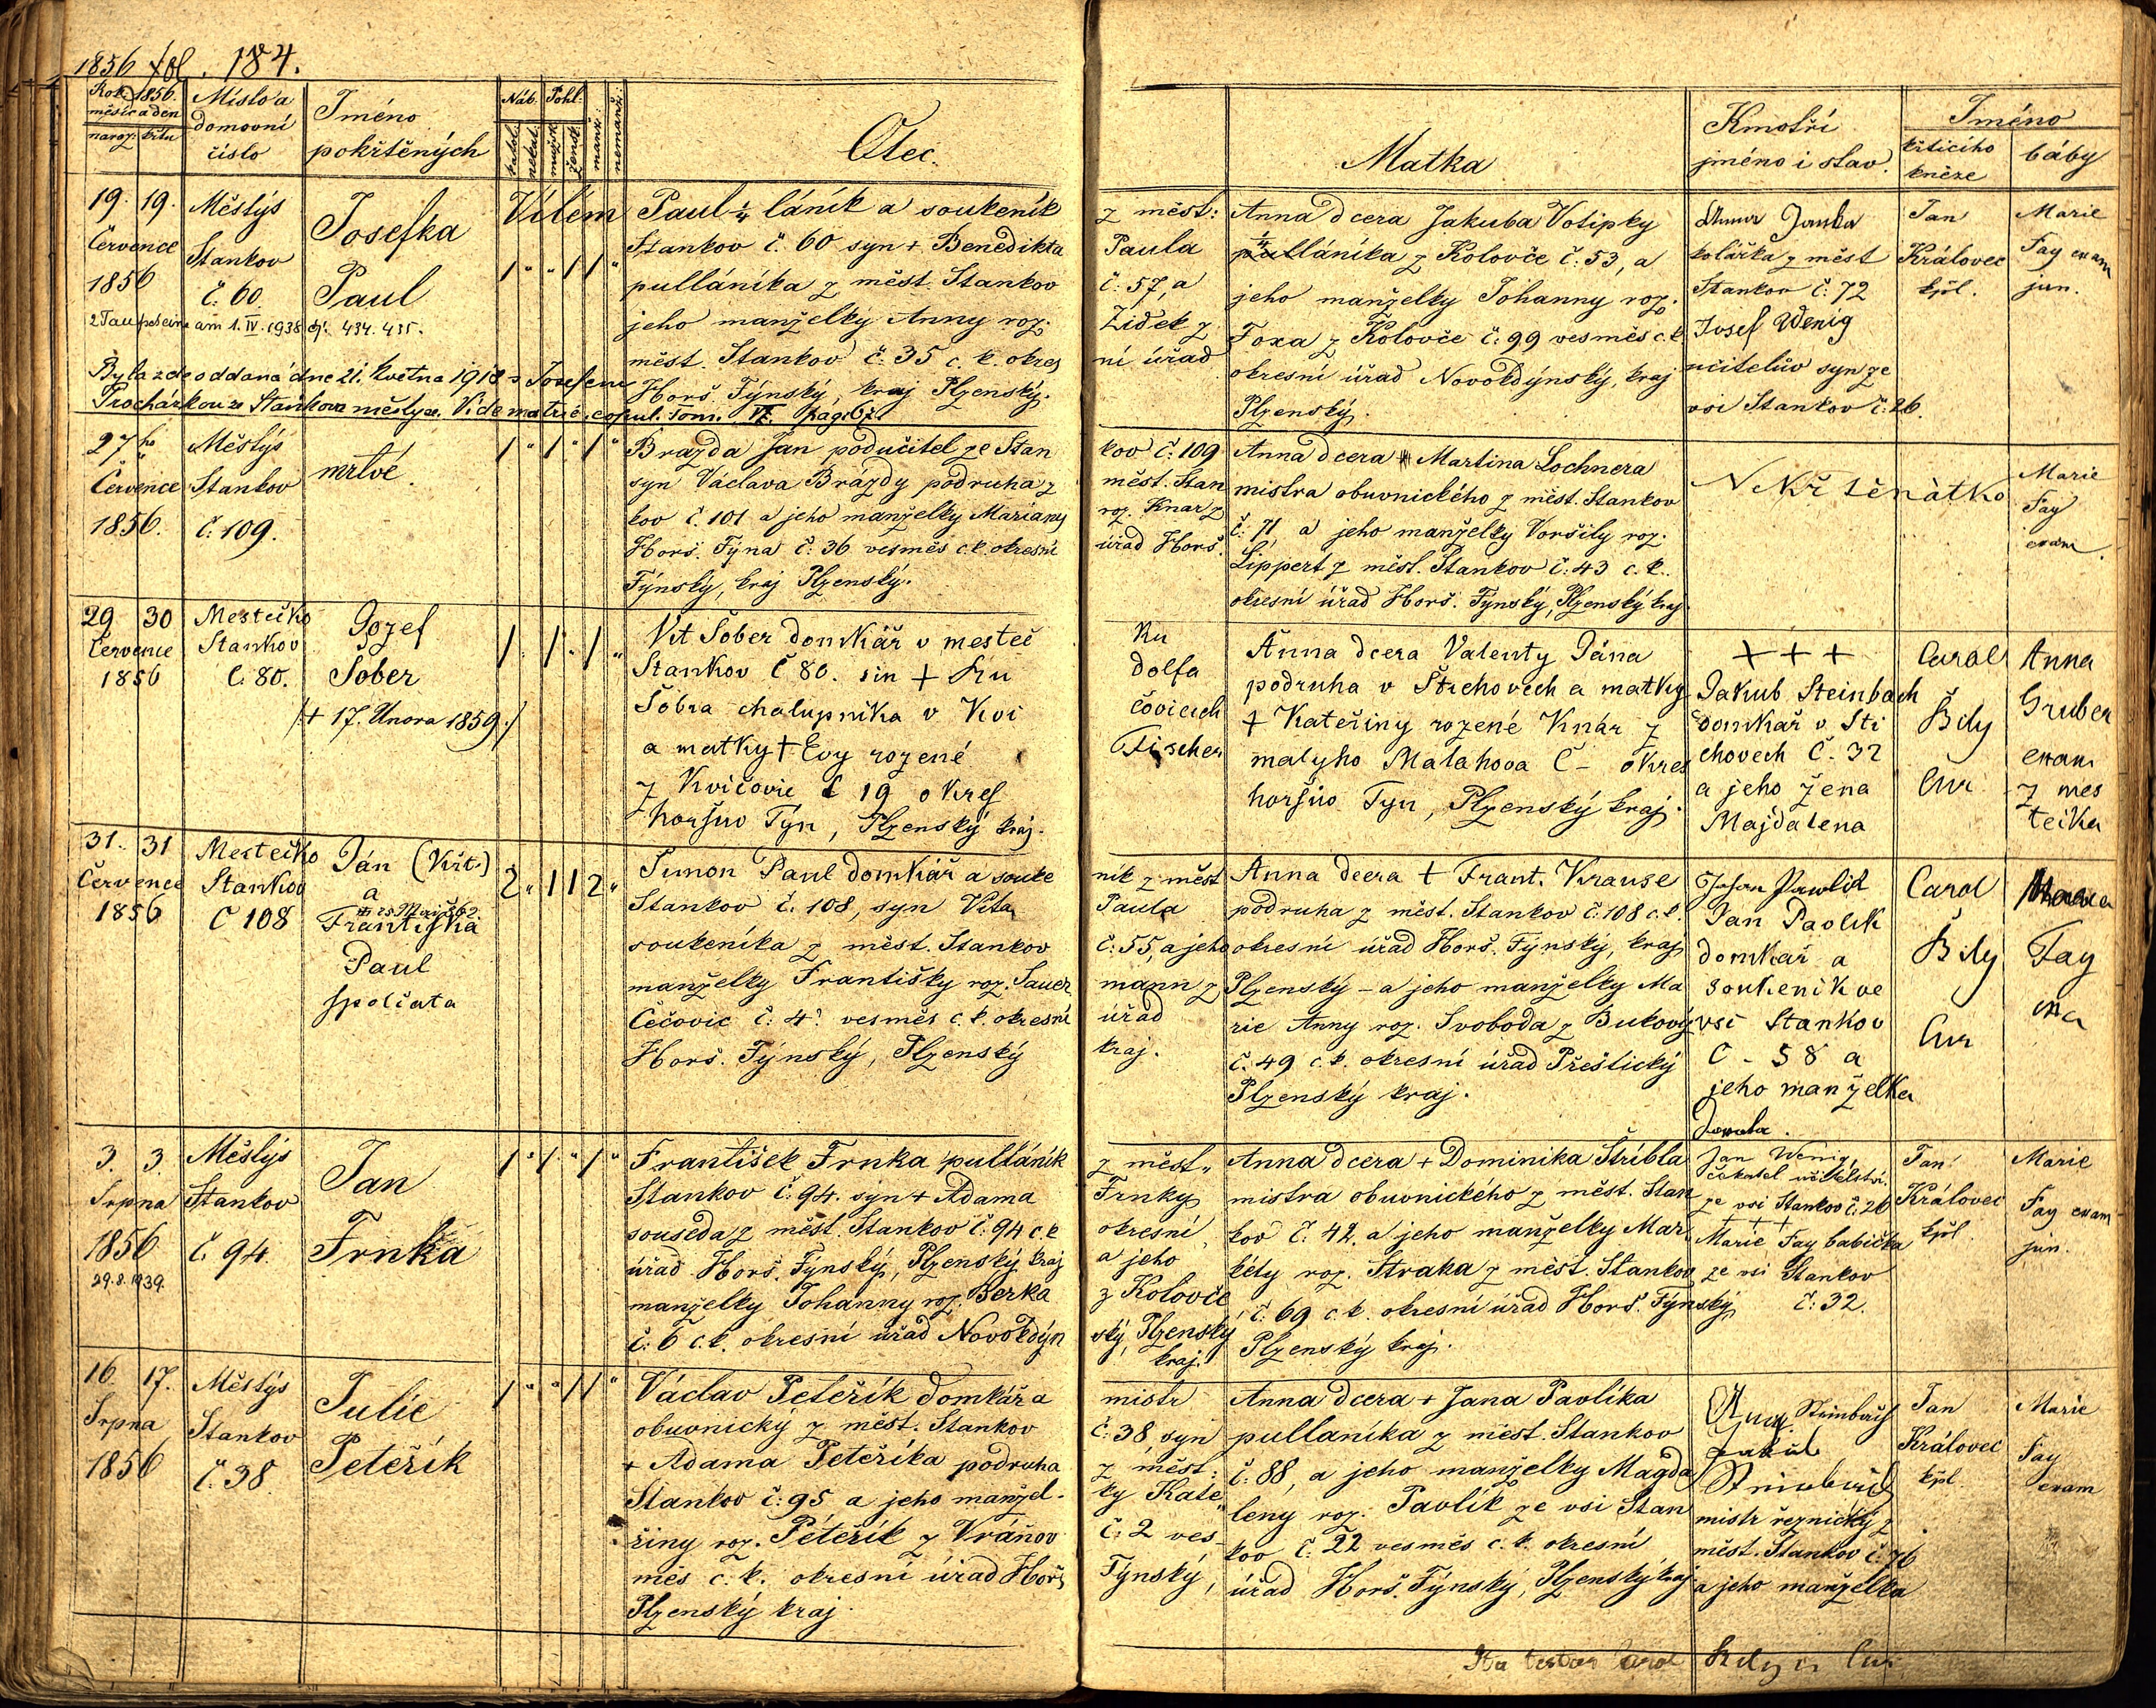 1856 fol. 184.
Rok 1856.
měsíc a den
naroz. křtu
Místo a
domovní
číslo
Jméno
pokřtěných
Náb. Pohl.
katol.
nekat.
mužsk.
žensk.
manž.
nemanž.
Otec.
Matka
Kmotři
jméno i stav.
Jméno
křticího
kněze
báby
19. 19.
Července
1856
Městýs
Stankov
č. 60
Josefka
Paul
2 Taufscheine am 1. IV. 1938 čj. 434. 435.
Byla zde oddaná dne 21. května 1918 s Josefem
Procházkou ze Staňkova městyse. Vide matric. copul. Tom. VI. pag. 67.
1 " " 1 1 "
Vilém Paul ¼ láník a soukeník
Stankov č. 60 syn + Benedikta
pulláníka z měst. Stankov
jeho manželky Anny roz.
měst. Stankov č. 35 c. k. okres
Horš. Týnský, kraj Plzenský.
z měst:
Paula
č: 57, a
Židek z
ní úřad
Anna dcera Jakuba Votipky
¼ láníka z Kolovče č: 53, a
jeho manželky Johanny roz.
Foxa z Kolovče č: 99 vesměs c. k.
okresní úřad Novokdýnský, kraj
Plzenský.
Anna Janka
kolářka z měst
Stankov č: 72
Josef Wenig
učitelův syn ze
vsi Stankov č: 26.
Jan
Královec
kpl.
Marie
Fay exam
jun.
27ho
Července
1856.
Městýs
Stankov
č: 109.
mrtvé.
1 " 1 " 1 "
Brazda Jan podučitel ze Stan
syn Václava Brázdy podruha z
kov č. 101 a jeho manželky Mariany
Horš. Týna č: 36 vesměs c. k. okresní
Týnský, kraj Plzenský.
kov č: 109
měst. Stan
roz. Knar z
úřad Horš.
Anna dcera Martina Lochnera
mistra obuvnického z měst. Stankov
č: 71, a jeho manželky Voršily roz.
Lippert z měst. Stankov č: 43 c. k.
okresní úřad Horš. Týnský, Plzenský kraj
Nekřtěnátko
Marie
Fay
exam.
29 30
Července
1856
Mestečko
Stankov
č. 80.
Jozef
Šober
/+ 17. Února 1859./
1 . 1 . 1 "
Vit Šober domkář v mesteč
Stankov č 80. sin + Ru
Šobra chalupnika v Kvi
a matky + Evy rozené
z Kvičovic č 19 okres
horšuv Týn, Plzenský kraj.
Ru
dolfa
čovicich
Fischer
Anna dcera Valenty Jána
podruha v Střchovech a matky
+ Kateřiny rozené Knár z
malyho Malahova Č – okres
horšuv Tyn, Plzenský kraj.
+ + +
Jakub Steinbach
domkař v Stř
chovech Č. 32
a jeho žena
Majdalena
Carol
Bily
Cur
Anna
Gruber
exam
z mes
tečka
31. 31
Července
1856
Mestečko
Stankov
Č 108
Ján (Křt.)
a
Františka
Paul
spolčata
2 " 1 1 2 "
Šimon Paul domkář a souke
Stankov č. 108, syn Víta
soukeníka z měst. Stankov
manželky Františky roz. Sauer
Čečovic č: 4. vesměs c. k. okresní
Horš. Týnský, Plzenský
ník z měst
Paula
č: 55, a jeho
mann z
úřad
kraj.
Anna dcera + Frant. Krause
podruha z měst. Stankov č. 108 c. k.
okresní úřad Horš. Týnský, kraj
Plzenský – a jeho manželky Ma
rie Anny roz. Svoboda z Bukový
č. 49 c. k. okresní úřad Přeštický
Plzenský kraj.
Johan Pawlik
Jan Paolik
domkař a
soukenik ve
vsi Stankov
Č - 58 a
jeho manželka
Carol
Bily
Cur
Fay
3. 3.
Srpna
1856
29.8.1939.
Městýs
Stankov
č. 94.
Jan
Frnka
1 " 1 " 1 "
František Frnka pulláník
Stankov č: 94. syn + Adama
souseda z měst. Stankov č. 94 c. k
úřad Horš. Týnský, Plzenský kraj
manželky Johanny roz. Berka
č. 6 c. k. okresní úřad Novokdýn
z měst.
Frnky
okresní
a jeho
z Kolovče
ský, Plzenský
kraj.
Anna dcera + Dominika Stribla
mistra obuvnického z měst. Stan
kov č. 42, a jeho manželky Mar
kéty roz. Straka z měst. Stankov
č: 69 c. k. okresní úřad Horš. Týnský
Plzenský kraj.
Jan Wenig,
čekatel učitelství
ze vsi Stankov č. 26
+ + +
Marie Fay babička
ze vsi Stankov
č: 32.
Jan
Královec
kpl.
Marie
Fay exam
jun.
16. 17.
Srpna
1856
Městýs
Stankov
č. 38
Julie
Peteřík
1 " " 1 1 "
Václav Peteřík domkář a
obuvnický z měst. Stankov
+ Adama Peteříka podruha
Stankov č: 95 a jeho manžel-
řiny roz. Peteřík z Vráňov
měs c. k. okresní úřad Horš
Plzenský kraj.
mistr
č. 38, syn
z měst:
ky Kate
č: 2 ves-
Týnský,
Anna dcera + Jana Pavlíka
pulláníka z měst. Stankov
č. 88, a jeho manželky Magda
leny roz. Pavlík ze vsi Stan
kov č. 22 vesměs c. k. okresní
úřad Horš. Týnský, Plzenský kraj
Steinbach
Jakub
Steinbach
mistr řeznický z
měst. Stankov č. 76
a jeho manželka
Jan
Královec
kpl.
Marie
Fay
exam
Ita testor Carol Bily Cur